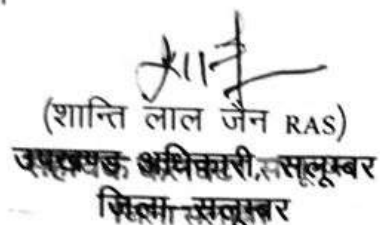 (शान्ति लाल जैन RAS)
उपखण्ड अधिकारी, सलूम्बर
जिला सलूम्बर